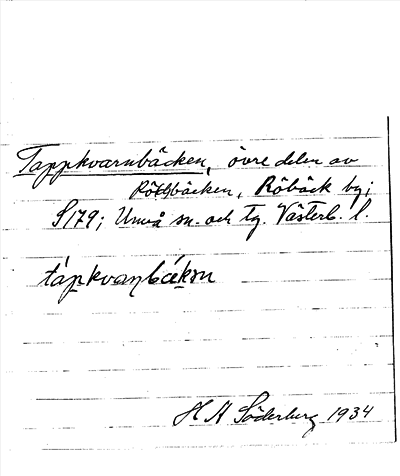 Tappkvarnbäcken, övre delen av
Röbäcken, Röbäck by;
S179; Umeå sn. och tg. Västerb. l.
tápkvaɳbǽkən
H A Söderberg 1934